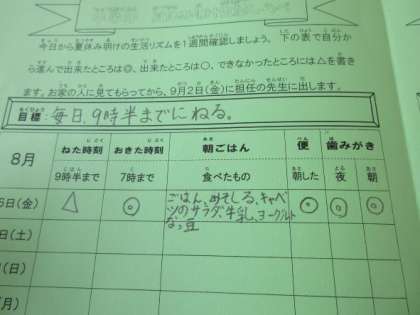 今日から夏休み明けの生活リズムを1週間確認しましょう。下の表で自分か
ら進んで出来たところは◎、出来たところは○、できなかったところには△を書き
ます。お家の人に見てもらってから、9月2日(金)に担任の先生に出します。
目標:毎日、9時半までにねる。
8月 ねた時刻 おきた時刻 朝ごはん 便 歯みがき
9時半まで 7時まで 食べたもの 朝した 夜 朝
(金) △ ◎ ごはん、みそしる、キャベ ◎ ◎ ◎
ツのサラダ、牛乳、ヨーグルト
なっ豆
(土)
(日)
(月)